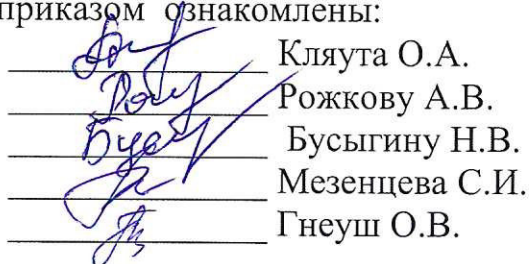 приказом ознакомлены:
Кляута О.А.
Рожкову А.В.
Бусыгину Н.В.
Мезенцева С.И.
Гнеуш О.В.